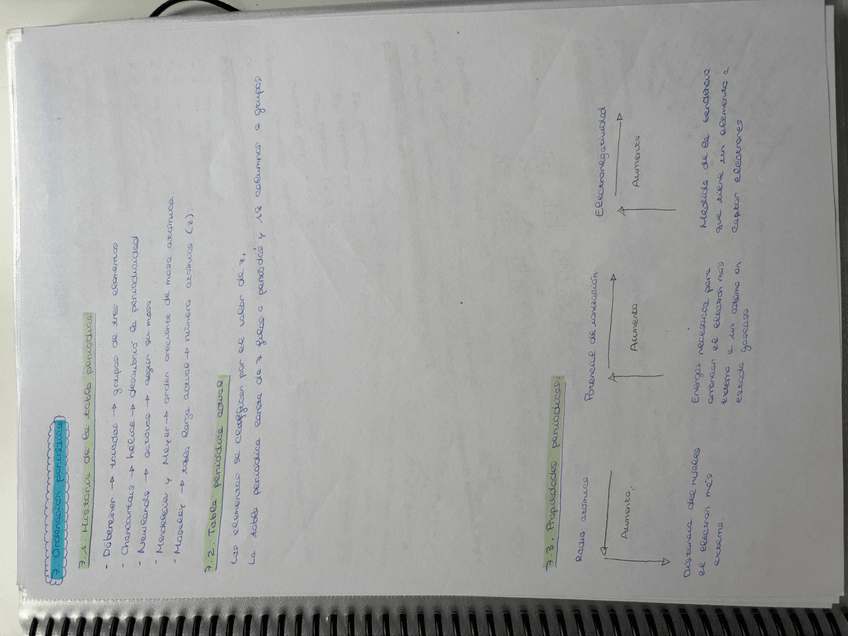 7. Ordenación periódica
7.1. Historia de la tabla periódica
- Döbereiner → triadas → grupos de tres elementos
- Chancourtois → hélice → descubrió la periodicidad
- Newlands → octavas → según su masa
- Mendeleiev y Meyer → orden creciente de masa atómica.
- Moseley → tabla larga actual → número atómico (z).
7.2. Tabla periódica actual
Los elementos se clasifican por el valor de z,
La tabla periódica consta de 7 filas o periodos y 18 columnas o grupos
7.3. Propiedades periódicas
Radio atómico
Aumenta.
Distancia del núcleo
al electrón más
externo.
Potencial de ionización
Aumenta
Energía necesaria para
arrancar el electrón más
externo a un átomo en
estado gaseoso
Electronegatividad
Aumenta
Medida de la tendencia
que tiene un elemento a
captar electrones